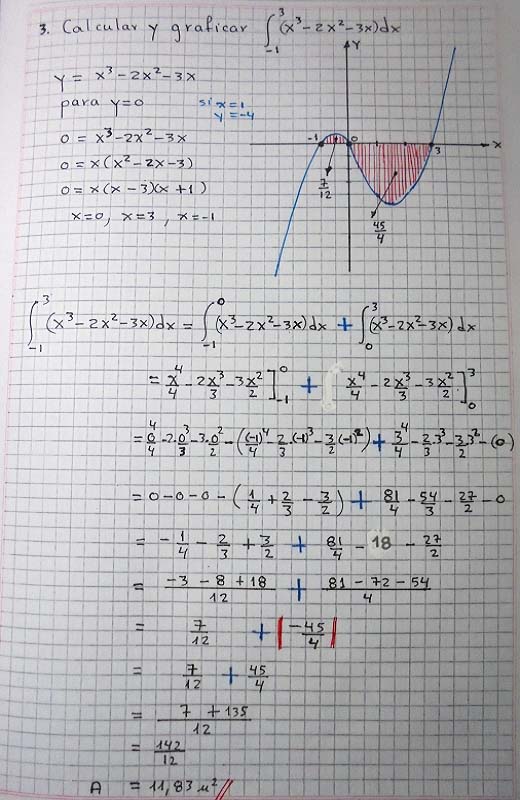 3. Calcular y graficar ∫₋₁³ (x³-2x²-3x)dx
Y
y = x³-2x²-3x
para y=0
si x=1
y=-4
0 = x³-2x²-3x
0 = x(x²-2x-3)
0 = x(x-3)(x+1)
x=0, x=3, x=-1
-1 0 3 x
7/12
45/4
∫₋₁³ (x³-2x²-3x)dx = ∫₋₁⁰ (x³-2x²-3x)dx + ∫₀³ (x³-2x²-3x)dx
= x⁴/4 - 2x³/3 - 3x²/2 ]₋₁⁰ + x⁴/4 - 2x³/3 - 3x²/2 ]₀³
= 0⁴/4 - 2·0³/3 - 3·0²/2 - ((-1)⁴/4 - 2/3·(-1)³ - 3/2(-1)²) + 3⁴/4 - 2/3·3³ - 3/2·3² - (0)
= 0-0-0 - (1/4 + 2/3 - 3/2) + 81/4 - 54/3 - 27/2 - 0
= -1/4 - 2/3 + 3/2 + 81/4 - 18 - 27/2
= (-3 - 8 + 18)/12 + (81 - 72 - 54)/4
= 7/12 + |-45/4|
= 7/12 + 45/4
= (7 + 135)/12
= 142/12
A = 11,83 u² //